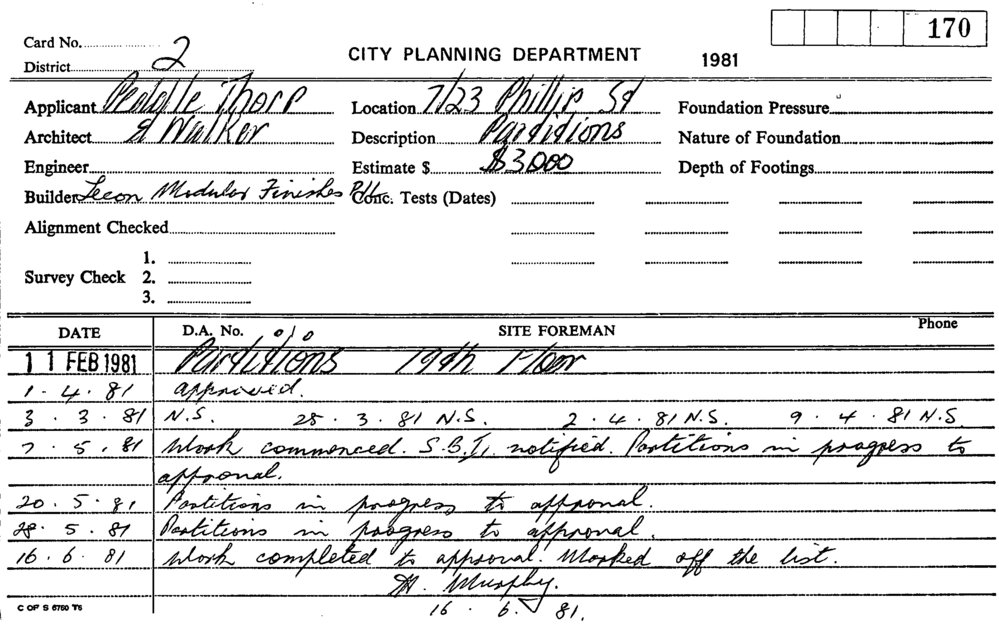 170
Card No.
CITY PLANNING DEPARTMENT 1981
District 2
Applicant Peddle Thorp Location 7/23 Phillip St Foundation Pressure
Architect & Walker Description Partitions Nature of Foundation
Engineer Estimate $ $3,000 Depth of Footings
Builder Tecon Modular Finishes P/L Conc. Tests (Dates)
Alignment Checked
1.
Survey Check 2.
3.
DATE D.A. No. 010 SITE FOREMAN Phone
11 FEB 1981 Partitions 19th Floor
1 . 4 . 81 approved.
3 . 3 . 81 N.S. 25 . 3 . 81 N.S. 2 . 4 . 81 N.S. 9 . 4 . 81 N.S.
7 . 5 . 81 Work commenced. S.B.I. notified. Partitions in progress to
approval.
20 . 5 . 81 Partitions in progress to approval.
28 . 5 . 81 Partitions in progress to approval.
16 . 6 . 81 Work completed to approval. Marked off the list.
Murphy.
16 . 6 . 81.
C OF S 6750 T5